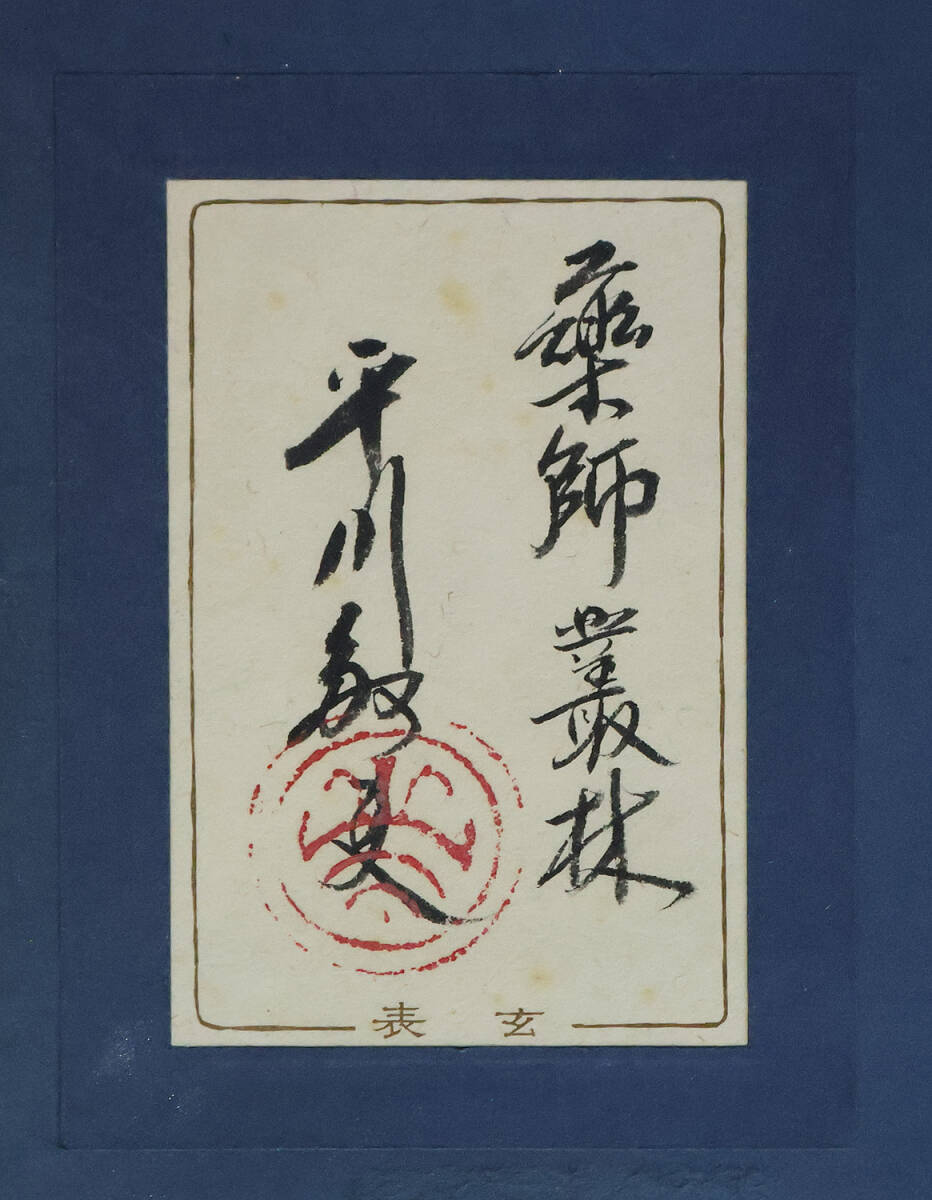 藥師叢林
平川敏夫
玄表